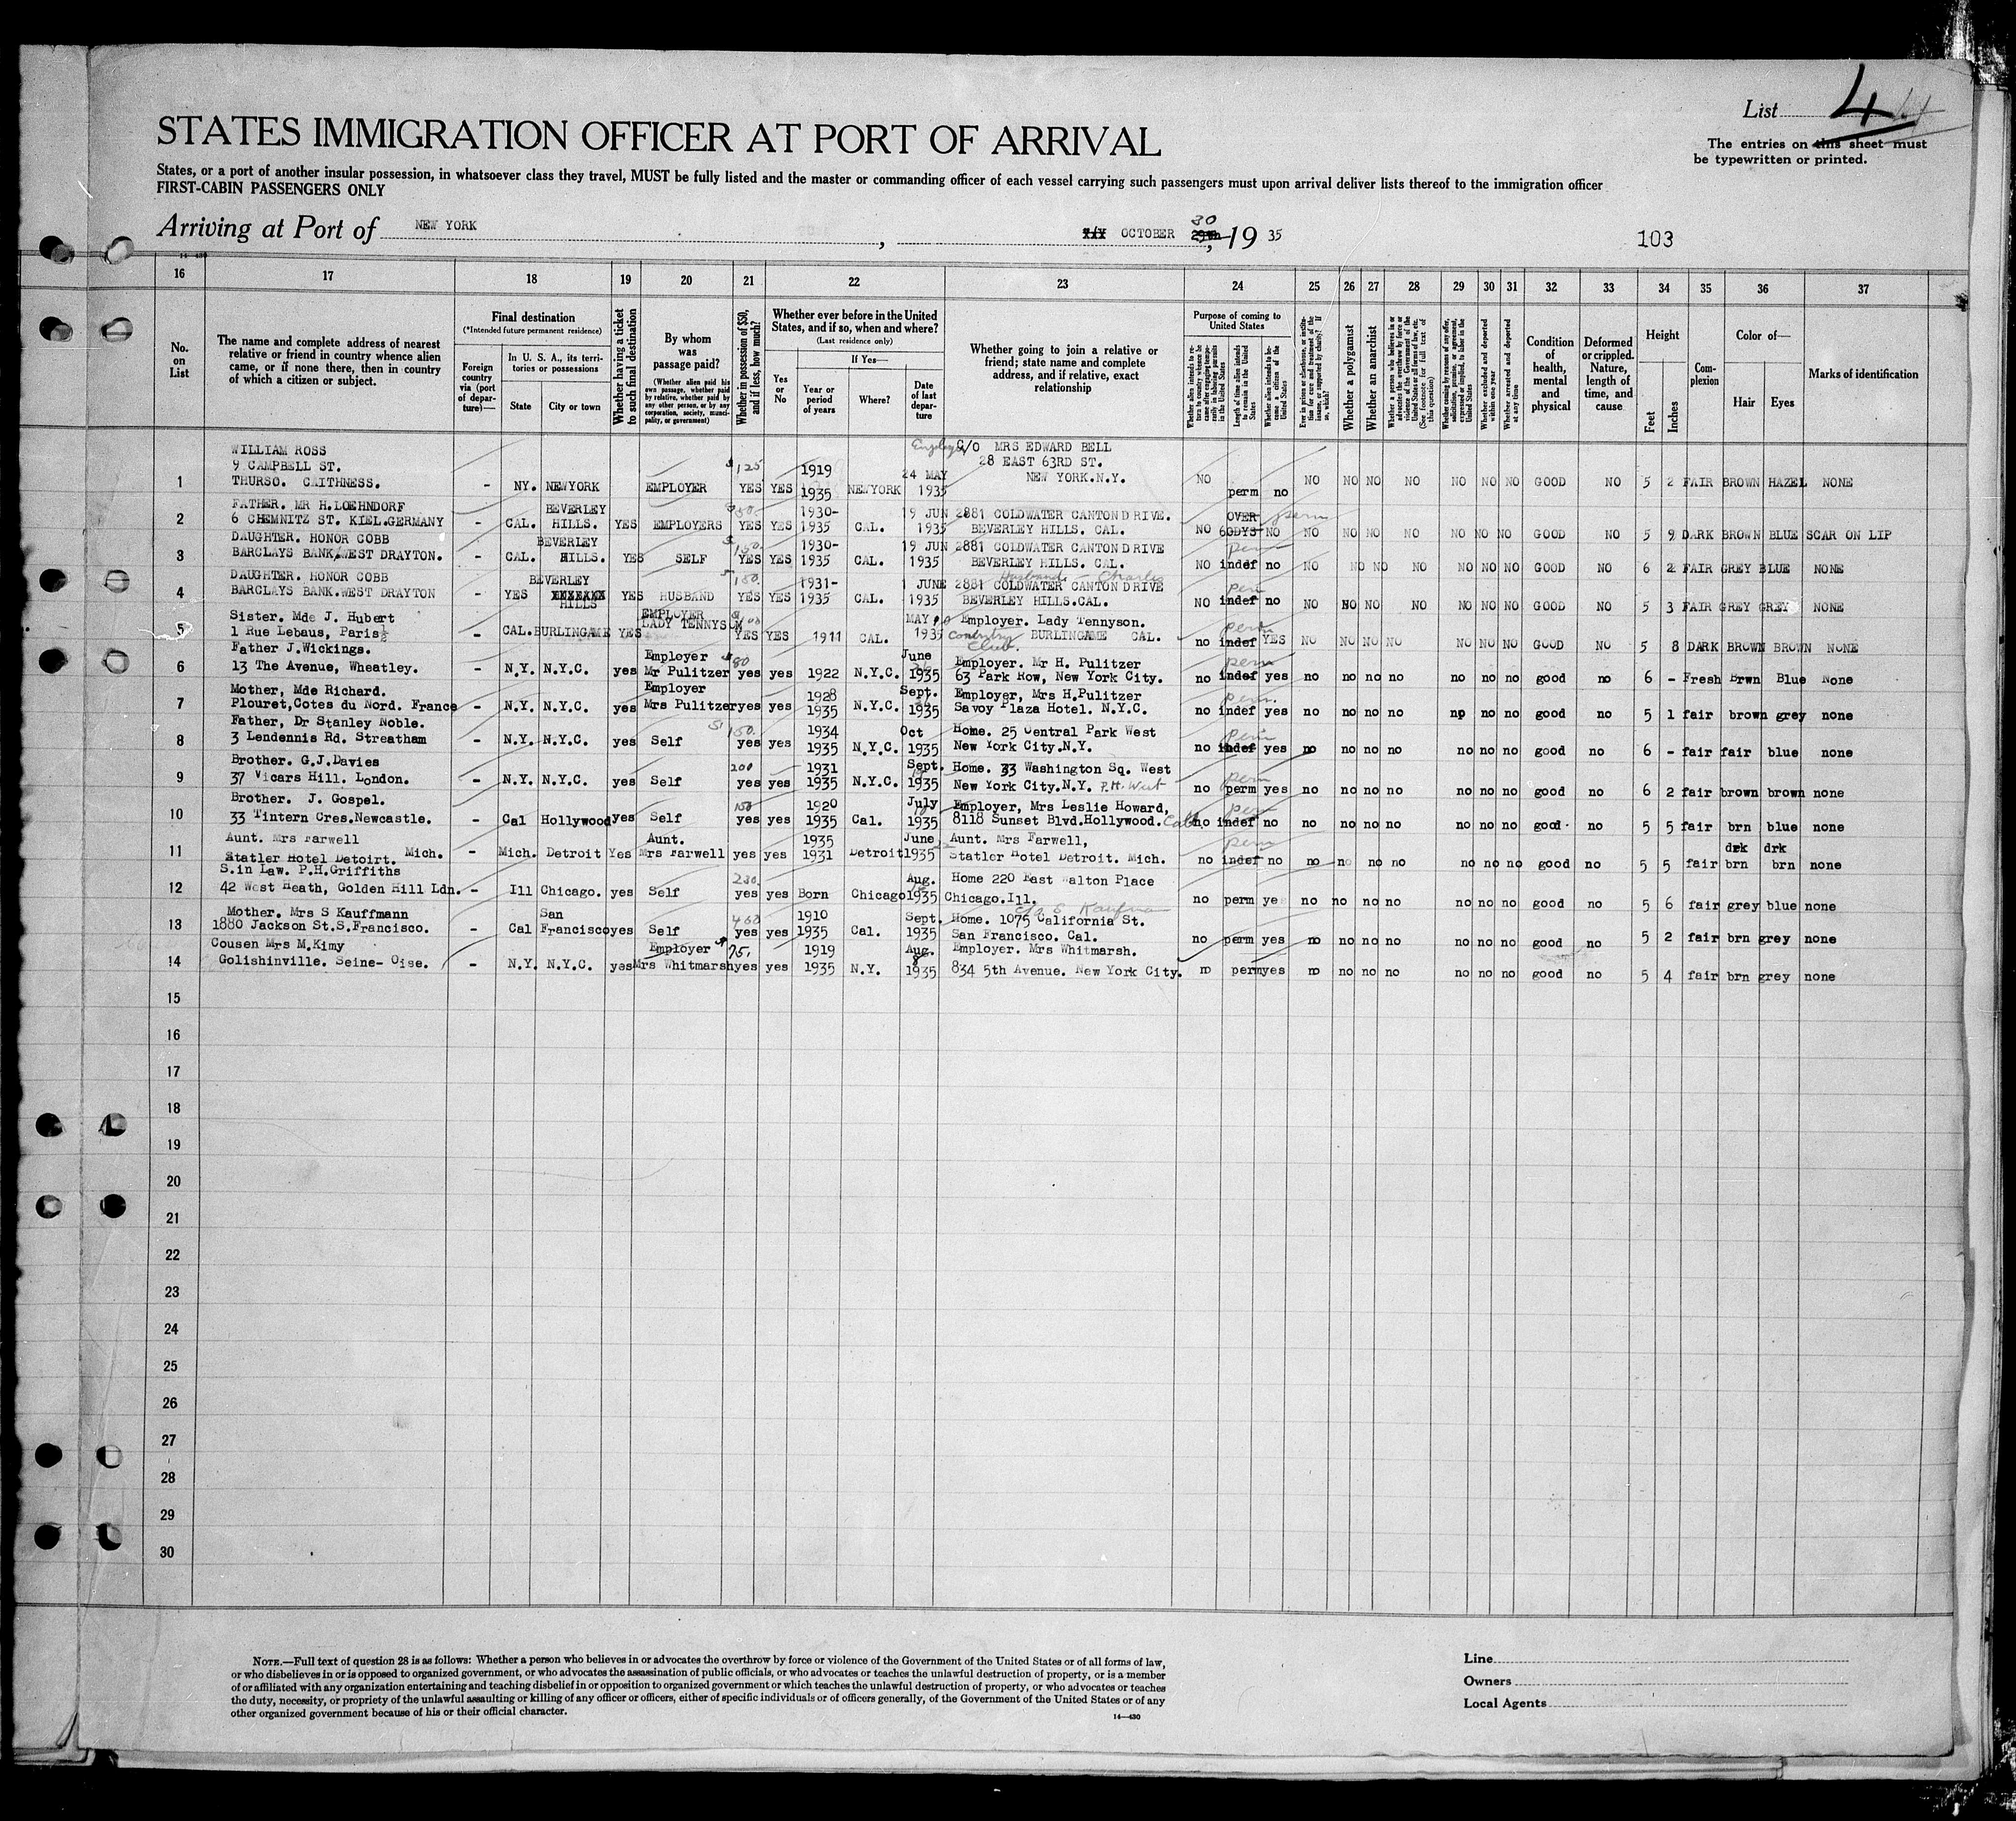 List 4
STATES IMMIGRATION OFFICER AT PORT OF ARRIVAL
The entries on this sheet must
be typewritten or printed.
States, or a port of another insular possession, in whatsoever class they travel, MUST be fully listed and the master or commanding officer of each vessel carrying such passengers must upon arrival deliver lists thereof to the immigration officer
FIRST-CABIN PASSENGERS ONLY
Arriving at Port of NEW YORK, OCTOBER 30 29th, 19 35
103
14-430
16 17 18 19 20 21 22 23 24 25 26 27 28 29 30 31 32 33 34 35 36 37
No. on List
The name and complete address of nearest relative or friend in country whence alien came, or if none there, then in country of which a citizen or subject.
Final destination
(*Intended future permanent residence)
Foreign country via (port of departure)—
In U. S. A., its territories or possessions
State
City or town
Whether having a ticket to such final destination
By whom was passage paid?
(Whether alien paid his own passage, whether paid by relative, whether paid by any other person, or by any corporation, society, municipality, or government)
Whether in possession of $50, and if less, how much?
Whether ever before in the United States, and if so, when and where?
(Last residence only)
Yes or No
If Yes—
Year or period of years
Where?
Date of last departure
Whether going to join a relative or friend; state name and complete address, and if relative, exact relationship
Purpose of coming to United States
Whether alien intends to return to country whence he came after engaging temporarily in laboring pursuits in the United States
Length of time alien intends to remain in the United States
Whether alien intends to become a citizen of the United States
Ever in prison or almshouse, or institution for care and treatment of the insane, or supported by charity? If so, which?
Whether a polygamist
Whether an anarchist
(See footnote for full text of this question)
Whether coming by reason of any offer, solicitation, promise, or agreement, expressed or implied, to labor in the United States
Whether excluded and deported within one year
Whether arrested and deported at any time
Condition of health, mental and physical
Deformed or crippled. Nature, length of time, and cause
Height
Feet
Inches
Complexion
Color of—
Hair
Eyes
Marks of identification
WILLIAM ROSS C/O MRS EDWARD BELL
9 CAMPBELL ST. $125 1919 28 EAST 63RD ST.
1 THURSO. CAITHNESS. - NY. NEWYORK EMPLOYER YES YES 1935 NEWYORK 24 MAY 1935 NEW YORK.N.Y. NO perm no NO NO NO NO NO NO NO GOOD NO 5 2 FAIR BROWN HAZEL NONE
FATHER. MR H.LOEHNDORF BEVERLEY 1930- 19 JUN 2881 COLDWATER CANTON DRIVE. OVER perm
2 6 CHEMNITZ ST. KIEL.GERMANY - CAL. HILLS. YES EMPLOYERS YES YES 1935 CAL. 1935 BEVERLEY HILLS. CAL. NO 60DYS NO NO NO NO NO NO NO NO GOOD NO 5 9 DARK BROWN BLUE SCAR ON LIP
DAUGHTER. HONOR COBB BEVERLEY 150. 1930- 19 JUN 2881 COLDWATER CANTON DRIVE
3 BARCLAYS BANK.WEST DRAYTON. - CAL. HILLS. YES SELF YES YES 1935 CAL. 1935 BEVERLEY HILLS. CAL. NO indef no NO NO NO NO NO NO NO GOOD NO 6 2 FAIR GREY BLUE NONE
DAUGHTER. HONOR COBB BEVERLEY 1931- 1 JUNE Husband - Charles 2881 COLDWATER CANTON DRIVE
4 BARCLAYS BANK.WEST DRAYTON - YES XXXXXXX HILLS YES HUSBAND YES YES 1935 CAL. 1935 BEVERLEY HILLS.CAL. NO indef no NO NO NO NO NO NO NO GOOD NO 5 3 FAIR GREY GREY NONE
Sister. Mde J. Hubert EMPLOYER LADY TENNYSON MAY Employer. Lady Tennyson. perm
5 1 Rue Lebaus, Paris - CAL. BURLINGAME YES YES YES 1911 CAL. 1935 Country Club. BURLINGAME CAL. no indef YES NO NO NO NO NO NO NO GOOD NO 5 8 DARK BROWN BROWN NONE
Father J.Wickings. Employer $80 June Employer. Mr H. Pulitzer perm
6 13 The Avenue, Wheatley. - N.Y. N.Y.C. yes Mr Pulitzer yes yes 1922 N.Y.C. 1935 63 Park Row, New York City. no indef yes no no no no no no no good no 6 - Fresh Brwn Blue None
Mother, Mde Richard. Employer 1928 Sept. Employer, Mrs H.Pulitzer perm
7 Plouret,Cotes du Nord. France - N.Y. N.Y.C. yes Mrs Pulitzer yes yes 1935 N.Y.C. 1935 Savoy Plaza Hotel. N.Y.C. no indef yes no no no no np no no good no 5 1 fair brown grey none
Father, Dr Stanley Noble. 150. 1934 Oct Home. 25 Central Park West perm
8 3 Lendennis Rd. Streatham - N.Y. N.Y.C. yes Self yes yes 1935 N.Y.C. 1935 New York City.N.Y. no indef yes no no no no no no no good no 6 - fair fair blue none
Brother. G.J.Davies 200 1931 Sept. Home. 33 Washington Sq. West perm
9 37 Vicars Hill. London. - N.Y. N.Y.C. yes Self yes yes 1935 N.Y.C. 1935 New York City.N.Y. no perm yes no no no no no no no good no 6 2 fair brown brown none
Brother. J. Gospel. 150 1920 July Employer, Mrs Leslie Howard, perm
10 33 Tintern Cres.Newcastle. - Cal Hollywood yes Self yes yes 1935 Cal. 1935 8118 Sunset Blvd.Hollywood. no indef no no no no no no no no good no 5 5 fair brn blue none
Aunt. Mrs Farwell Aunt. 1935 June Aunt. Mrs Farwell, perm drk drk
11 Statler Hotel Detoirt. Mich. - Mich. Detroit Yes Mrs Farwell yes yes 1931 Detroit 1935 Statler Hotel Detroit. Mich. no indef no no no no no no no no good no 5 5 fair brn brn none
S.in Law. P.H.Griffiths Aug. Home 220 East Walton Place
12 42 West Heath, Golden Hill Ldn. - Ill Chicago. yes Self yes yes Born Chicago 1935 Chicago.Ill. no perm ye no no no no no no no good no 5 6 fair grey blue none
Mother. Mrs S Kauffmann San 1910 Sept. Home. 1075 California St.
13 1880 Jackson St.S.Francisco. - Cal Francisco yes Self yes yes 1935 Cal. 1935 San Francisco. Cal. no perm yes no no no no no no no good no 5 2 fair brn grey none
Cousen Mrs M.Kimy Employer 75. 1919 Aug. Employer. Mrs Whitmarsh.
14 Golishinville. Seine- Oise. - N.Y. N.Y.C. yes Mrs Whitmarsh yes yes 1935 N.Y. 8 1935 834 5th Avenue. New York City. no perm yes no no no no no no no good no 5 4 fair brn grey none
15
16
17
18
19
20
21
22
23
24
25
26
27
28
29
30
NOTE.—Full text of question 28 is as follows: Whether a person who believes in or advocates the overthrow by force or violence of the Government of the United States or of all forms of law,
or who disbelieves in or is opposed to organized government, or who advocates the assassination of public officials, or who advocates or teaches the unlawful destruction of property, or is a member
of or affiliated with any organization entertaining and teaching disbelief in or opposition to organized government or which teaches the unlawful destruction of property, or who advocates or teaches
the duty, necessity, or propriety of the unlawful assaulting or killing of any officer or officers, either of specific individuals or of officers generally, of the Government of the United States or of any
other organized government because of his or their official character.
14—430
Line
Owners
Local Agents